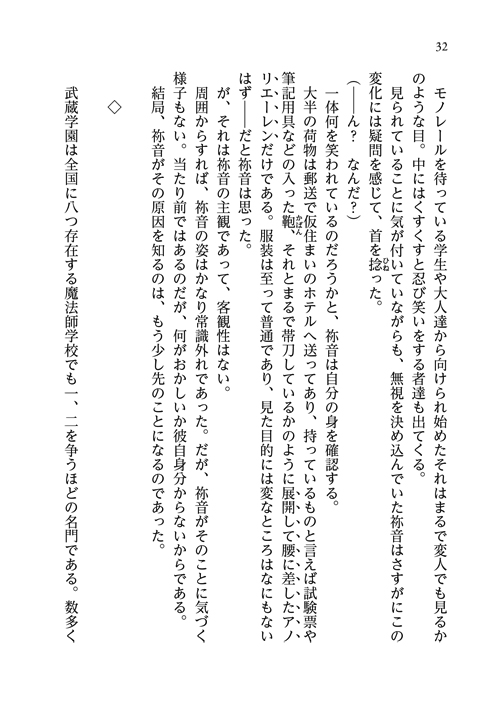 32
モノレールを待っている学生や大人達から向けられ始めたそれはまるで変人でも見るか
のような目。中にはくすくすと忍び笑いをする者達も出てくる。
見られていることに気が付いていながらも、無視を決め込んでいた祢音はさすがにこの
変化には疑問を感じて、首を捻った。
(――ん? なんだ?)
一体何を笑われているのだろうかと、祢音は自分の身を確認する。
大半の荷物は郵送で仮住まいのホテルへ送ってあり、持っているものと言えば試験票や
筆記用具などの入った鞄、それとまるで帯刀しているかのように展開して腰に差したアノ
リエーレンだけである。服装は至って普通であり、見た目的には変なところはなにもない
はず――だと祢音は思った。
が、それは祢音の主観であって、客観性はない。
周囲からすれば、祢音の姿はかなり常識外れであった。だが、祢音がそのことに気づく
様子もない。当たり前ではあるのだが、何がおかしいか彼自身分からないからである。
結局、祢音がその原因を知るのは、もう少し先のことになるのであった。
◇
武蔵学園は全国に八つ存在する魔法師学校でも一、二を争うほどの名門である。数多く